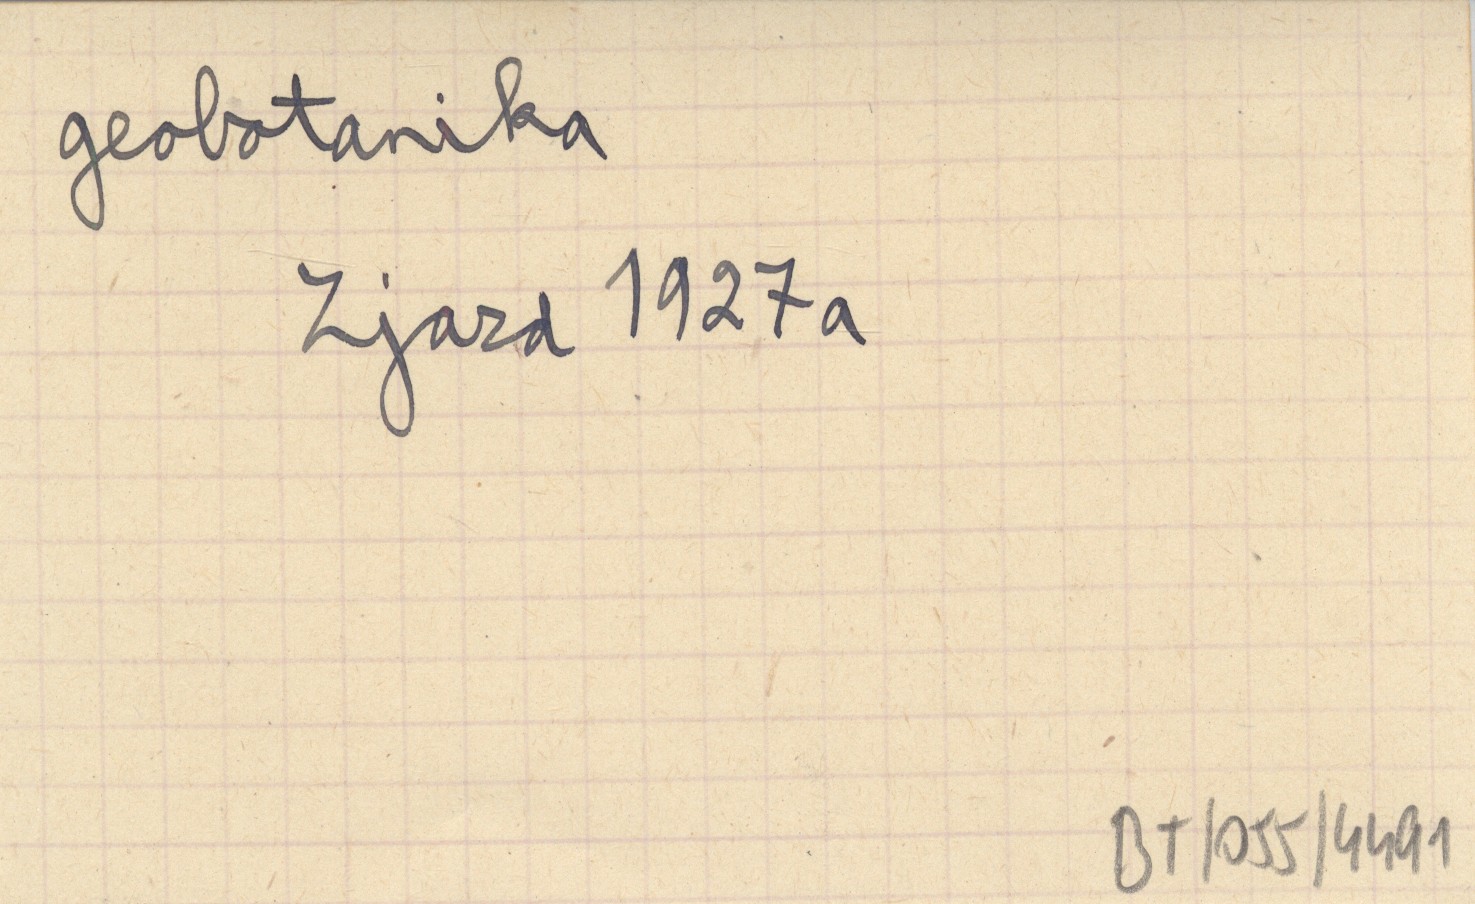 geobotanika
Zjazd 1927a
BT/055/4491